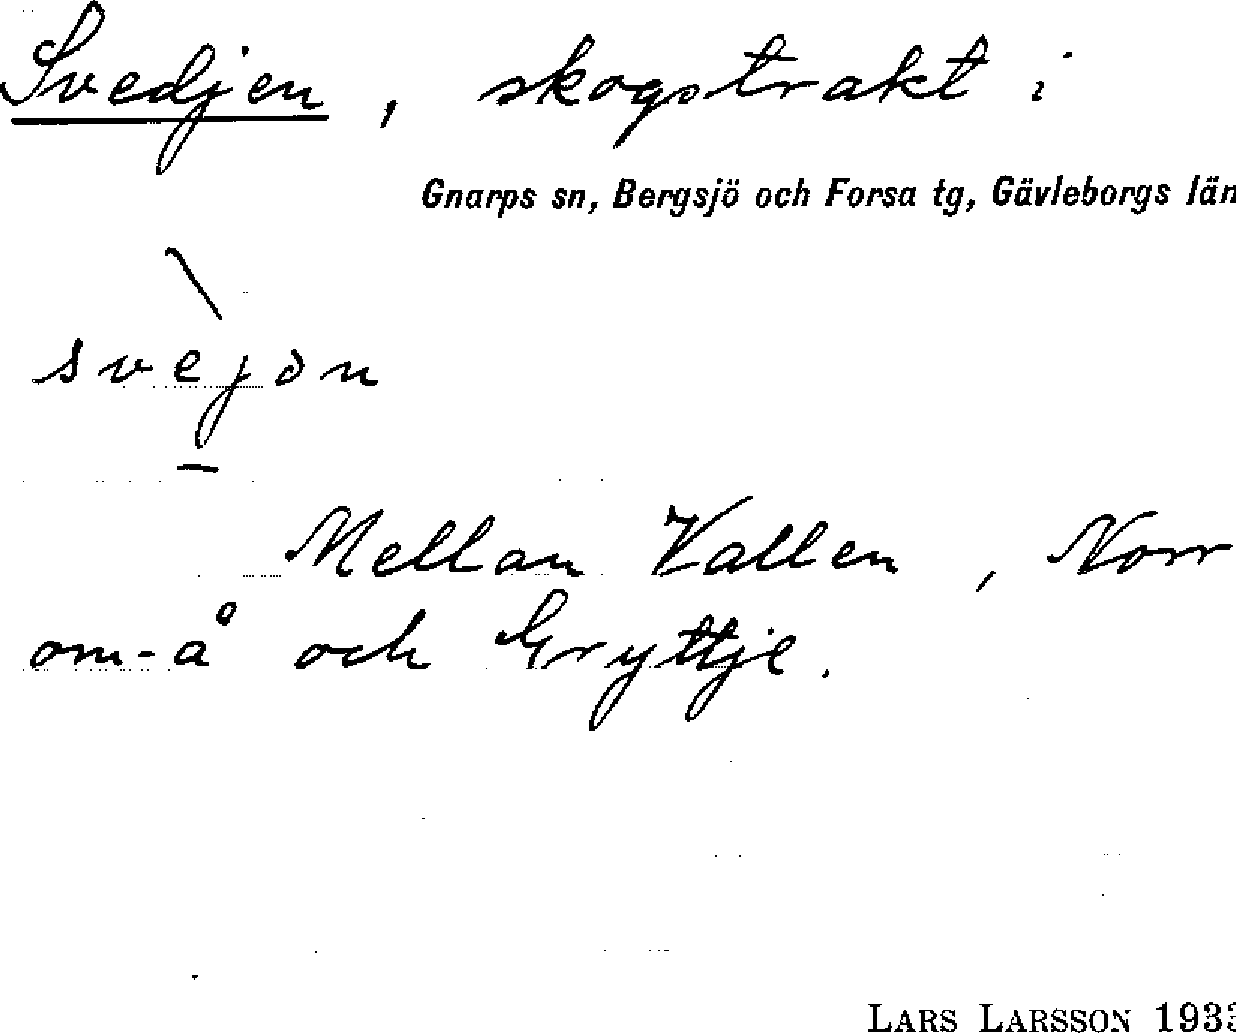 Svedjen, skogstrakt i
Gnarps sn, Bergsjö och Forsa tg, Gävleborgs län
svèjən
Mellan Vallen, Norr
om-å och Gryttje.
LARS LARSSON 1933